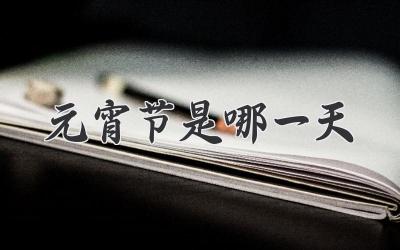 元宵节是哪一天